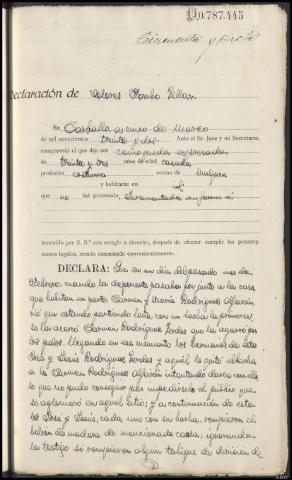 0.787.445
Cincuenta y ocho
Declaración de Dolores Pombo Villar.
En Carballo a cinco de Marzo
de mil novecientos treinta y dos. Ante el Sr. Juez y mi Secretario,
compareció el que dijo ser como queda expresado
de treinta y tres años de edad casada
profesión costurera vecino de Malpica
y habitante en id.
que no fué procesado, juramentada en forma
instruido por S. S.ª con arreglo a derecho, después de ofrecer cumplir las prescrip-
ciones legales, siendo examinado convenientemente.
DECLARA: Que en un día del pasado mes de
Febrero, cuando la deponente pasaba por junto a la casa
que habitan en parte Carmen y María Rodríguez Alfaián
vió que estando partiendo leña con un hacha la primera,
se le acercó Carmen Rodríguez Verdes que la agarró por
los pelos, llegando en ese momento los hermanos de esta
José y Jesús Rodríguez Verdes y aquél le quitó el hacha
a la Carmen Rodríguez Alfaián intentando darle con ella
lo que no pudo conseguir por impedírselo el público que
se aglomeró en aquel sitio; y a continuación de esto
los José y Jesús, cada uno con su hacha, rompieron el
balcón de madera de mencionada casa, ignorando
la testigo si rompieron algún tabique de división de